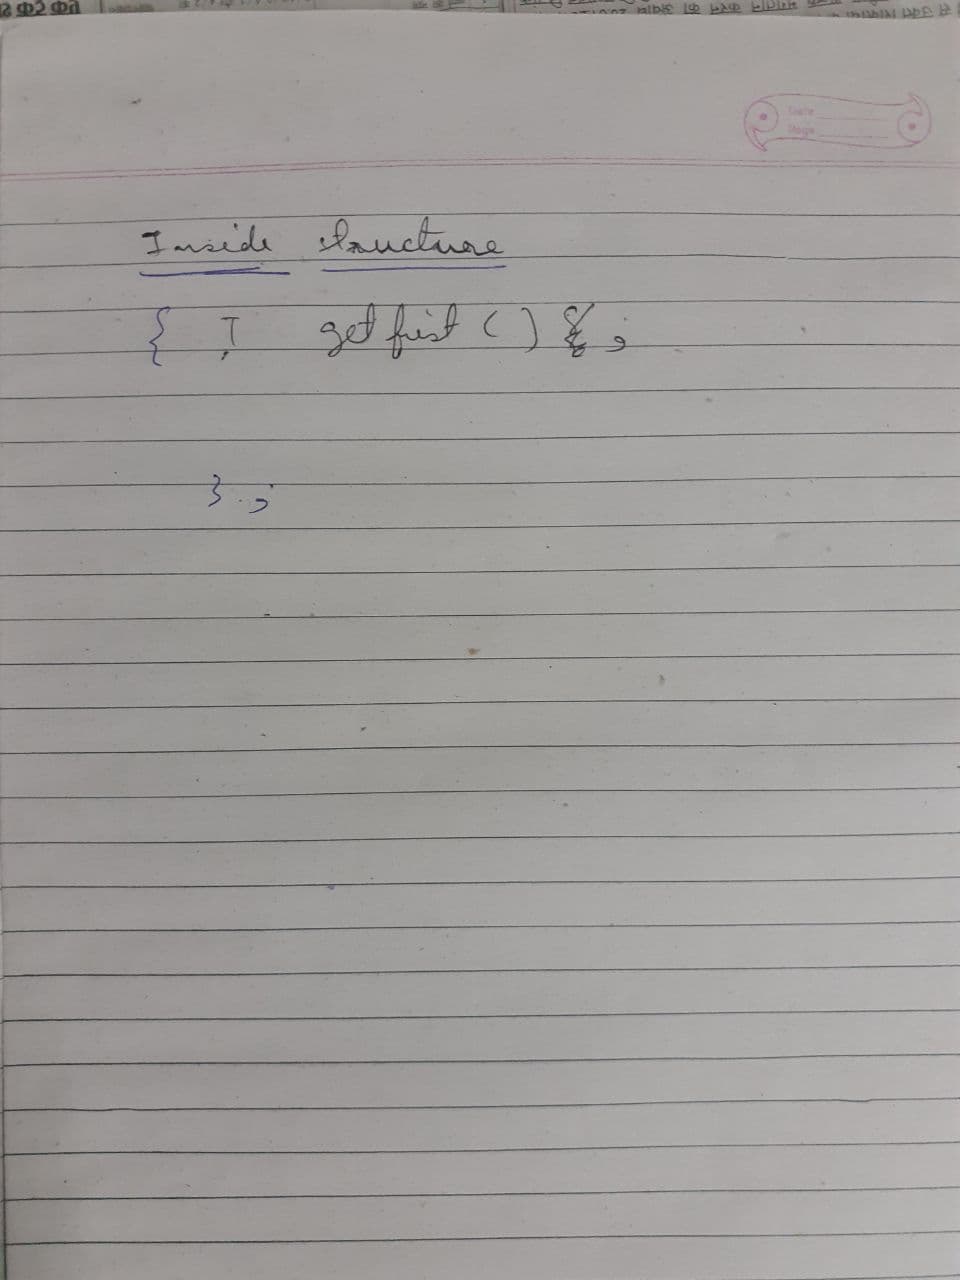 Date
Page
Inside structure
{ T getfirst ( ) ;
} ;